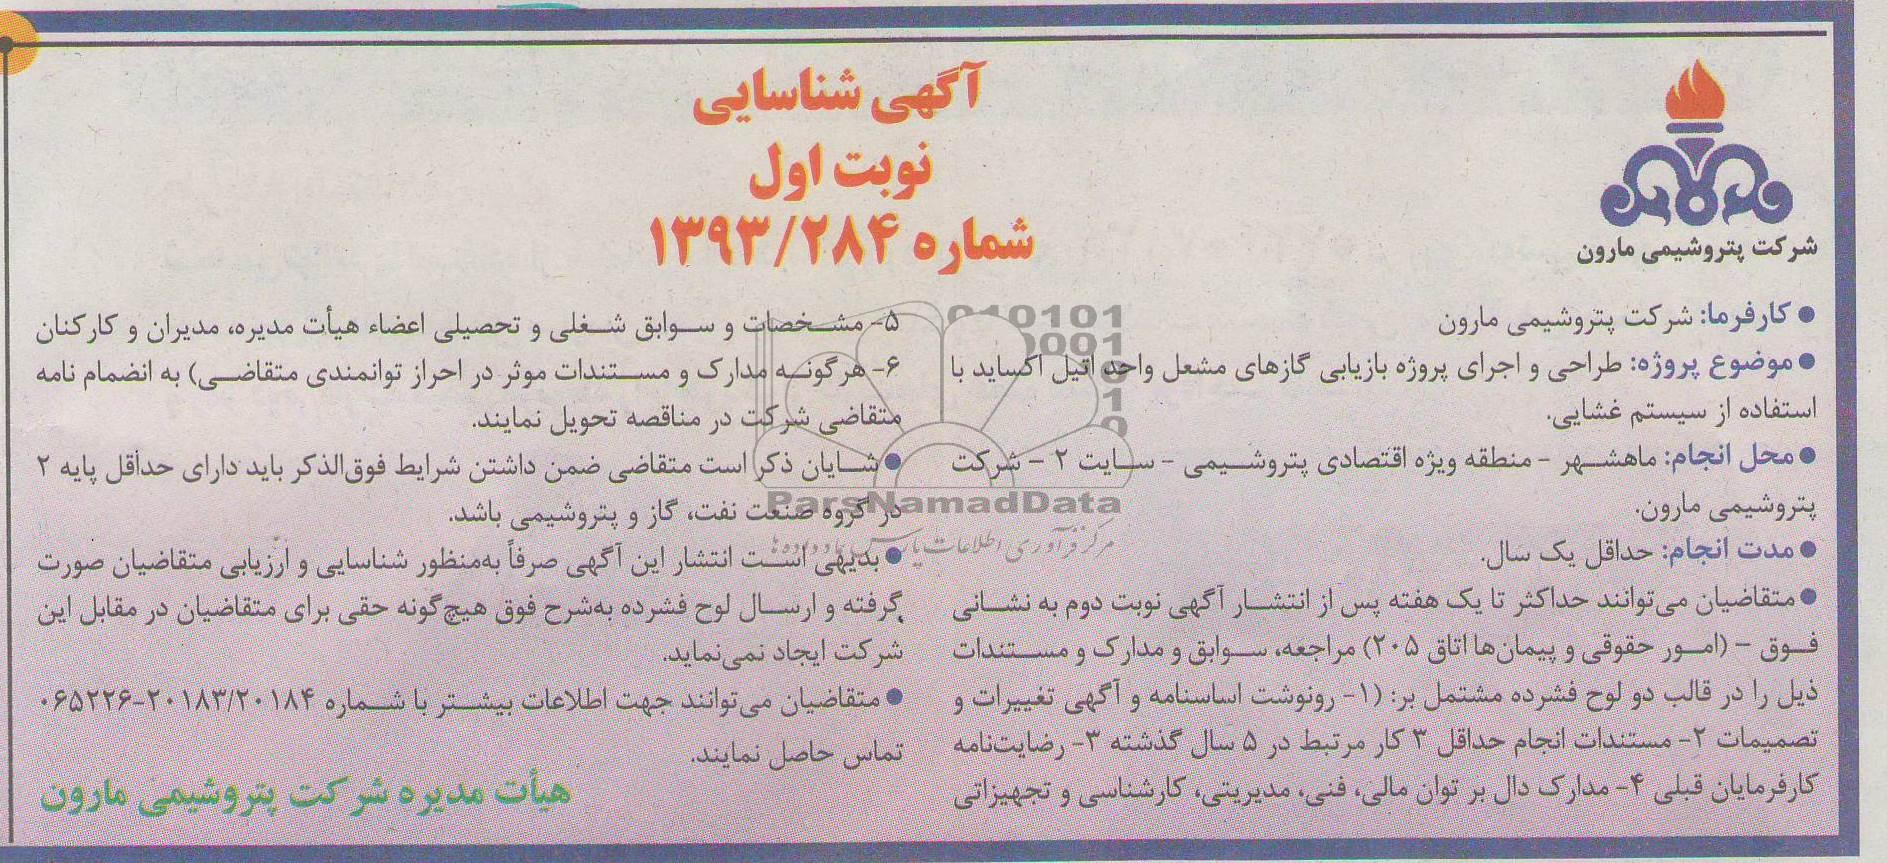 آگهی شناسایی
نوبت اول
شماره ۱۳۹۳/۲۸۴
شرکت پتروشیمی مارون
● کارفرما: شرکت پتروشیمی مارون
● موضوع پروژه: طراحی و اجرای پروژه بازیابی گازهای مشعل واحد اتیل اکساید با
استفاده از سیستم غشایی.
● محل انجام: ماهشهر - منطقه ویژه اقتصادی پتروشیمی - سایت ۲ - شرکت
پتروشیمی مارون.
● مدت انجام: حداقل یک سال.
● متقاضیان می‌توانند حداکثر تا یک هفته پس از انتشار آگهی نوبت دوم به نشانی
فوق - (امور حقوقی و پیمان‌ها اتاق ۲۰۵) مراجعه، سوابق و مدارک و مستندات
ذیل را در قالب دو لوح فشرده مشتمل بر: (۱- رونوشت اساسنامه و آگهی تغییرات و
تصمیمات ۲- مستندات انجام حداقل ۳ کار مرتبط در ۵ سال گذشته ۳- رضایت‌نامه
کارفرمایان قبلی ۴- مدارک دال بر توان مالی، فنی، مدیریتی، کارشناسی و تجهیزاتی
۵- مشخصات و سوابق شغلی و تحصیلی اعضاء هیأت مدیره، مدیران و کارکنان
۶- هرگونه مدارک و مستندات موثر در احراز توانمندی متقاضی) به انضمام نامه
متقاضی شرکت در مناقصه تحویل نمایند.
● شایان ذکر است متقاضی ضمن داشتن شرایط فوق‌الذکر باید دارای حداقل پایه ۲
در گروه صنعت نفت، گاز و پتروشیمی باشد.
● بدیهی است انتشار این آگهی صرفاً به‌منظور شناسایی و ارزیابی متقاضیان صورت
گرفته و ارسال لوح فشرده به‌شرح فوق هیچ‌گونه حقی برای متقاضیان در مقابل این
شرکت ایجاد نمی‌نماید.
● متقاضیان می‌توانند جهت اطلاعات بیشتر با شماره ۲۰۱۸۳/۲۰۱۸۴-۰۶۵۲۲۶
تماس حاصل نمایند.
هیأت مدیره شرکت پتروشیمی مارون
ParsNamadData